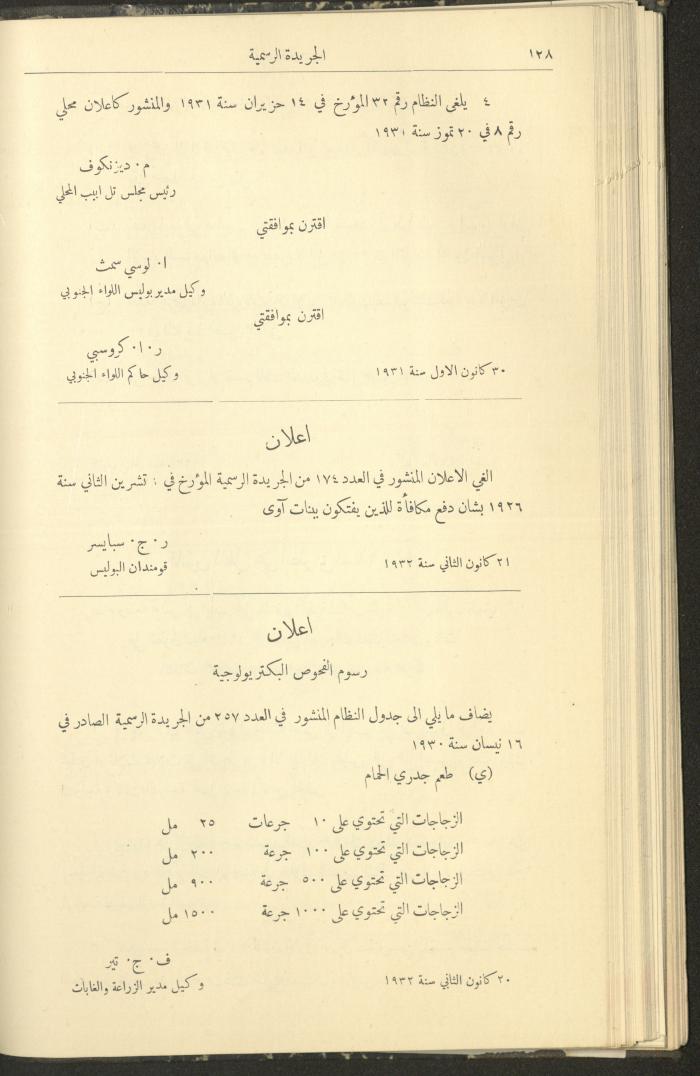 ١٢٨
الجريدة الرسمية
٤ يلغى النظام رقم ٣٢ المؤرخ في ١٤ حزيران سنة ١٩٣١ والمنشور كاعلان محلي
رقم ٨ في ٢٠ تموز سنة ١٩٣١
م٠ ديزنكوف
رئيس مجلس تل ابيب المحلي
اقترن بموافقتي
ا٠ لوسي سمث
وكيل مدير بوليس اللواء الجنوبي
اقترن بموافقتي
ر٠ا٠ كروسبي
٣٠ كانون الاول سنة ١٩٣١
وكيل حاكم اللواء الجنوبي
اعلان
الغي الاعلان المنشور في العدد ١٧٤ من الجريدة الرسمية المؤرخ في تشرين الثاني سنة
١٩٢٦ بشان دفع مكافأة للذين يفتكون ببنات آوى
ر٠ ج٠ سبايسر
٢١ كانون الثاني سنة ١٩٣٢
قومندان البوليس
اعلان
رسوم الفحوص البكتريولوجية
يضاف ما يلي الى جدول النظام المنشور في العدد ٢٥٧ من الجريدة الرسمية الصادر في
١٦ نيسان سنة ١٩٣٠
(ي) طعم جدري الحمام
الزجاجات التي تحتوي على ١٠ جرعات ٢٥ مل
الزجاجات التي تحتوي على ١٠٠ جرعة ٢٠٠ مل
الزجاجات التي تحتوي على ٥٠٠ جرعة ٩٠٠ مل
الزجاجات التي تحتوي على ١٠٠٠ جرعة ١٥٠٠ مل
ف٠ ج٠ تير
٢٠ كانون الثاني سنة ١٩٣٢
وكيل مدير الزراعة والغابات